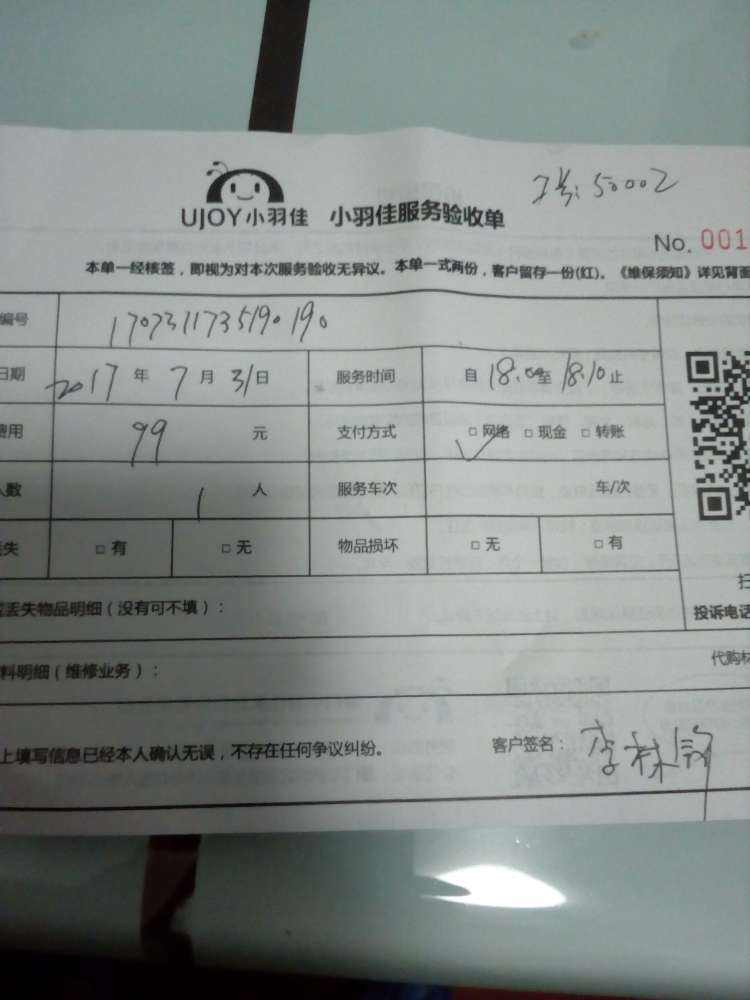 工号:50002
UJOY小羽佳 小羽佳服务验收单
No. 001
本单一经核签，即视为对本次服务验收无异议。本单一式两份，客户留存一份(红)。《维保须知》详见背面
编号 1707311735190190
日期 2017 年 7 月 31 日 服务时间 自 18.00 至 18.10 止
费用 99 元 支付方式 □ 网络 □ 现金 □ 转账
人数 1 人 服务车次 车/次
丢失 □ 有 □ 无 物品损坏 □ 无 □ 有
丢失物品明细（没有可不填）：
投诉电话
料明细（维修业务）：
代购材
上填写信息已经本人确认无误，不存在任何争议纠纷。 客户签名： 李林